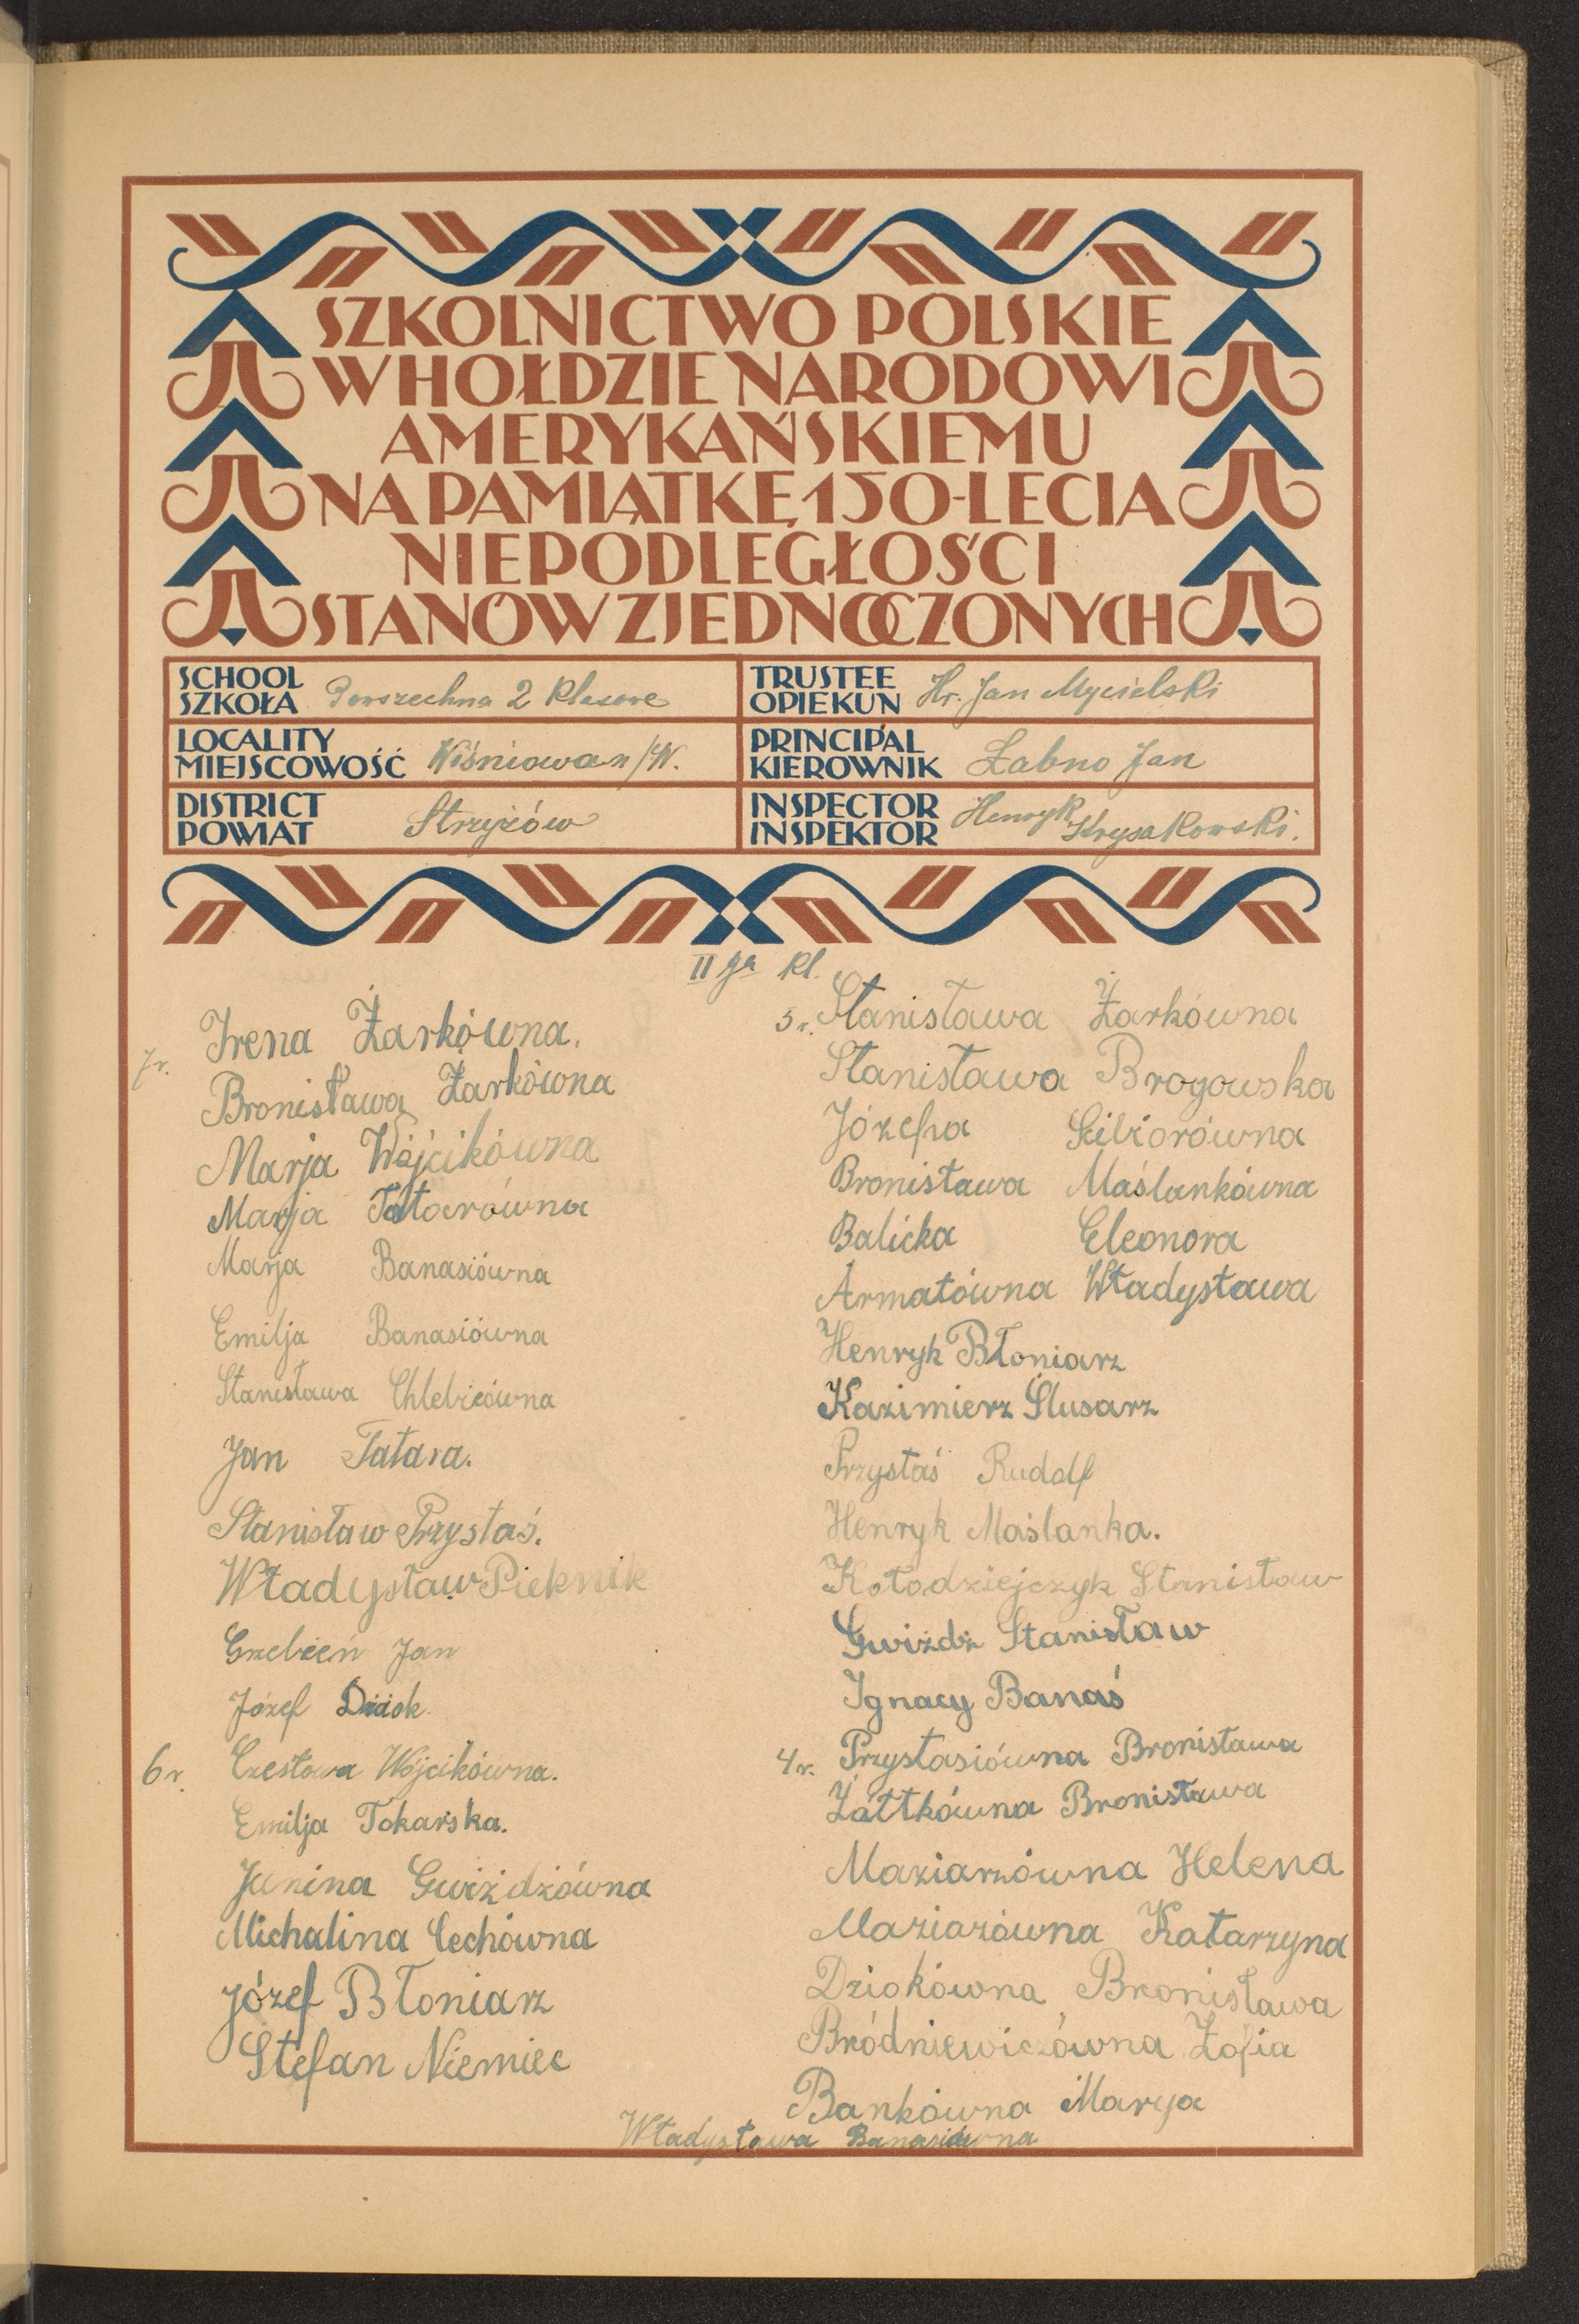 SZKOLNICTWO POLSKIE
W HOŁDZIE NARODOWI
AMERYKAŃSKIEMU
NA PAMIĄTKĘ 150-LECIA
NIEPODLEGŁOŚCI
STANÓW ZJEDNOCZONYCH
SCHOOL
SZKOŁA Powszechna 2 klasowa
LOCALITY
MIEJSCOWOŚĆ Wiśniowa n/W.
DISTRICT
POWIAT Strzyżów
TRUSTEE
OPIEKUN Hr. Jan Mycielski
PRINCIPAL
KIEROWNIK Łabno Jan
INSPECTOR
INSPEKTOR Henryk Krysakowski.
II ga kl.
7 r. Irena Żarkówna.
Bronisława Żarkówna
Marja Wójcikówna
Marja Tatarówna
Marja Banasiówna
Emilja Banasiówna
Stanisława Chlebicówna
Jan Tatara.
Stanisław Przystaś.
Władysław Pieknik
Grzebień Jan
Józef Dziok.
6 r. Czesława Wójcikówna.
Emilja Tokarska.
Janina Gwiżdżówna
Michalina Cechówna
Józef Błoniarz
Stefan Niemiec
5 r. Stanisława Żarkówna
Stanisława Brogowska
Józefa Ścibiorówna
Bronisława Maślankówna
Balicka Eleonora
Armatówna Władysława
Henryk Błoniarz
Kazimierz Ślusarz
Przystaś Rudolf
Henryk Maślanka.
Kołodziejczyk Stanisław
Gwiżdż Stanisław
Ignacy Banaś
4 r. Przystasiówna Bronisława
Żáttkówna Bronisława
Maziarzówna Helena
Maziarówna Katarzyna
Dziokówna Bronisława
Bródniewiczówna Zofia
Bankówna Marya
Władysława Banasiówna